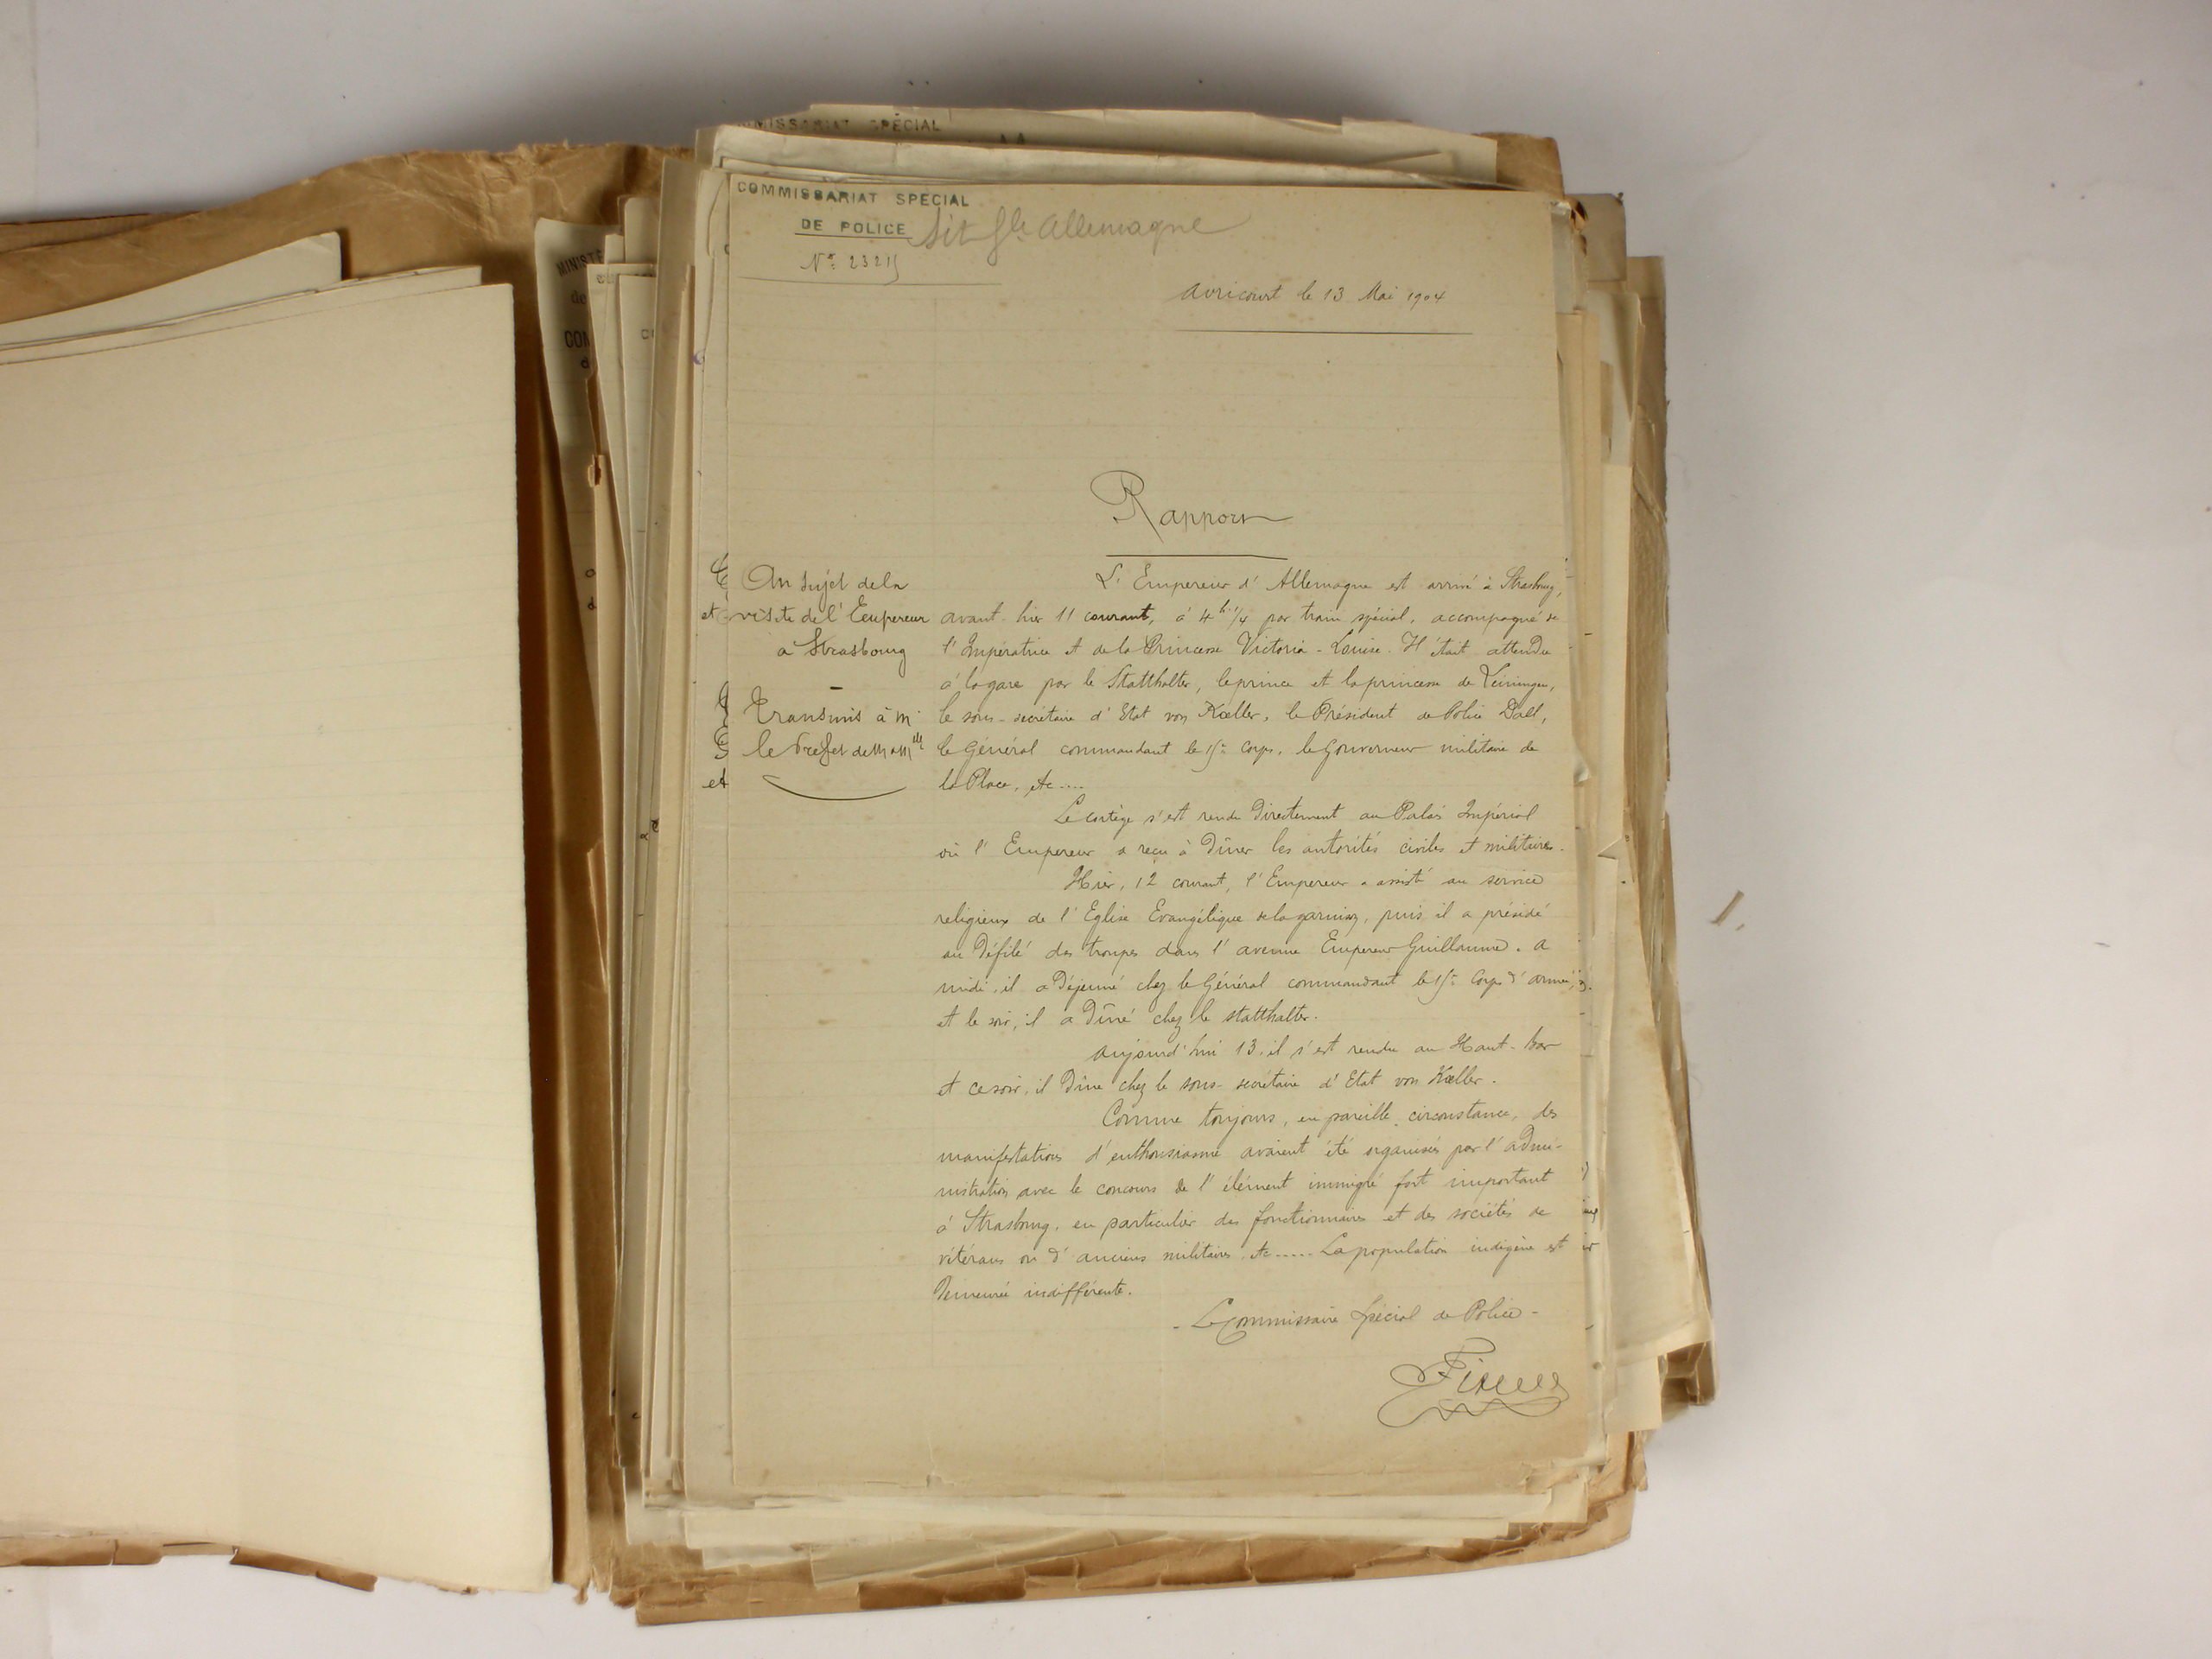 MMISSARIAT SPÉCIAL
COMMISSARIAT SPECIAL
DE POLICE
Sit Gle Allemagne
N° 2321
Avricourt le 13 Mai 1904
Rapport
Au sujet de la
visite de l'Empereur
à Strasbourg
Transmis à M.
le Préfet de M et Mlle
L'Empereur d'Allemagne est arrivé à Strasbourg,
avant-hier 11 courant, à 4h 1/4 par train spécial, accompagné de
l'Impératrice et de la Princesse Victoria-Louise. Il était attendu
à la gare par le Statthalter, le prince et la princesse de Leiningen,
le sous-secrétaire d'Etat von Kœller, le Président de Police Dall,
le Général commandant le 15e Corps, le Gouverneur militaire de
la Place, etc....
Le cortège s'est rendu directement au Palais Impérial
où l'Empereur a reçu à dîner les autorités civiles et militaires.
Hier, 12 courant, l'Empereur a assisté au service
religieux de l'Eglise Evangélique de la garnison, puis il a présidé
au défilé des troupes dans l'avenue Empereur Guillaume. A
midi, il a déjeuné chez le Général commandant le 15e Corps d'armée,
et le soir, il a dîné chez le statthalter.
Aujourd'hui 13, il s'est rendu au Haut-bar
et ce soir, il dîne chez le sous-secrétaire d'Etat von Kœller.
Comme toujours, en pareille circonstance, des
manifestations d'enthousiasme avaient été organisées par l'admi-
nistration avec le concours de l'élément immigré fort important
à Strasbourg, en particulier des fonctionnaires et des sociétés de
vétérans ou d'anciens militaires etc..... La population indigène est
demeurée indifférente.
- Le Commissaire Spécial de Police -